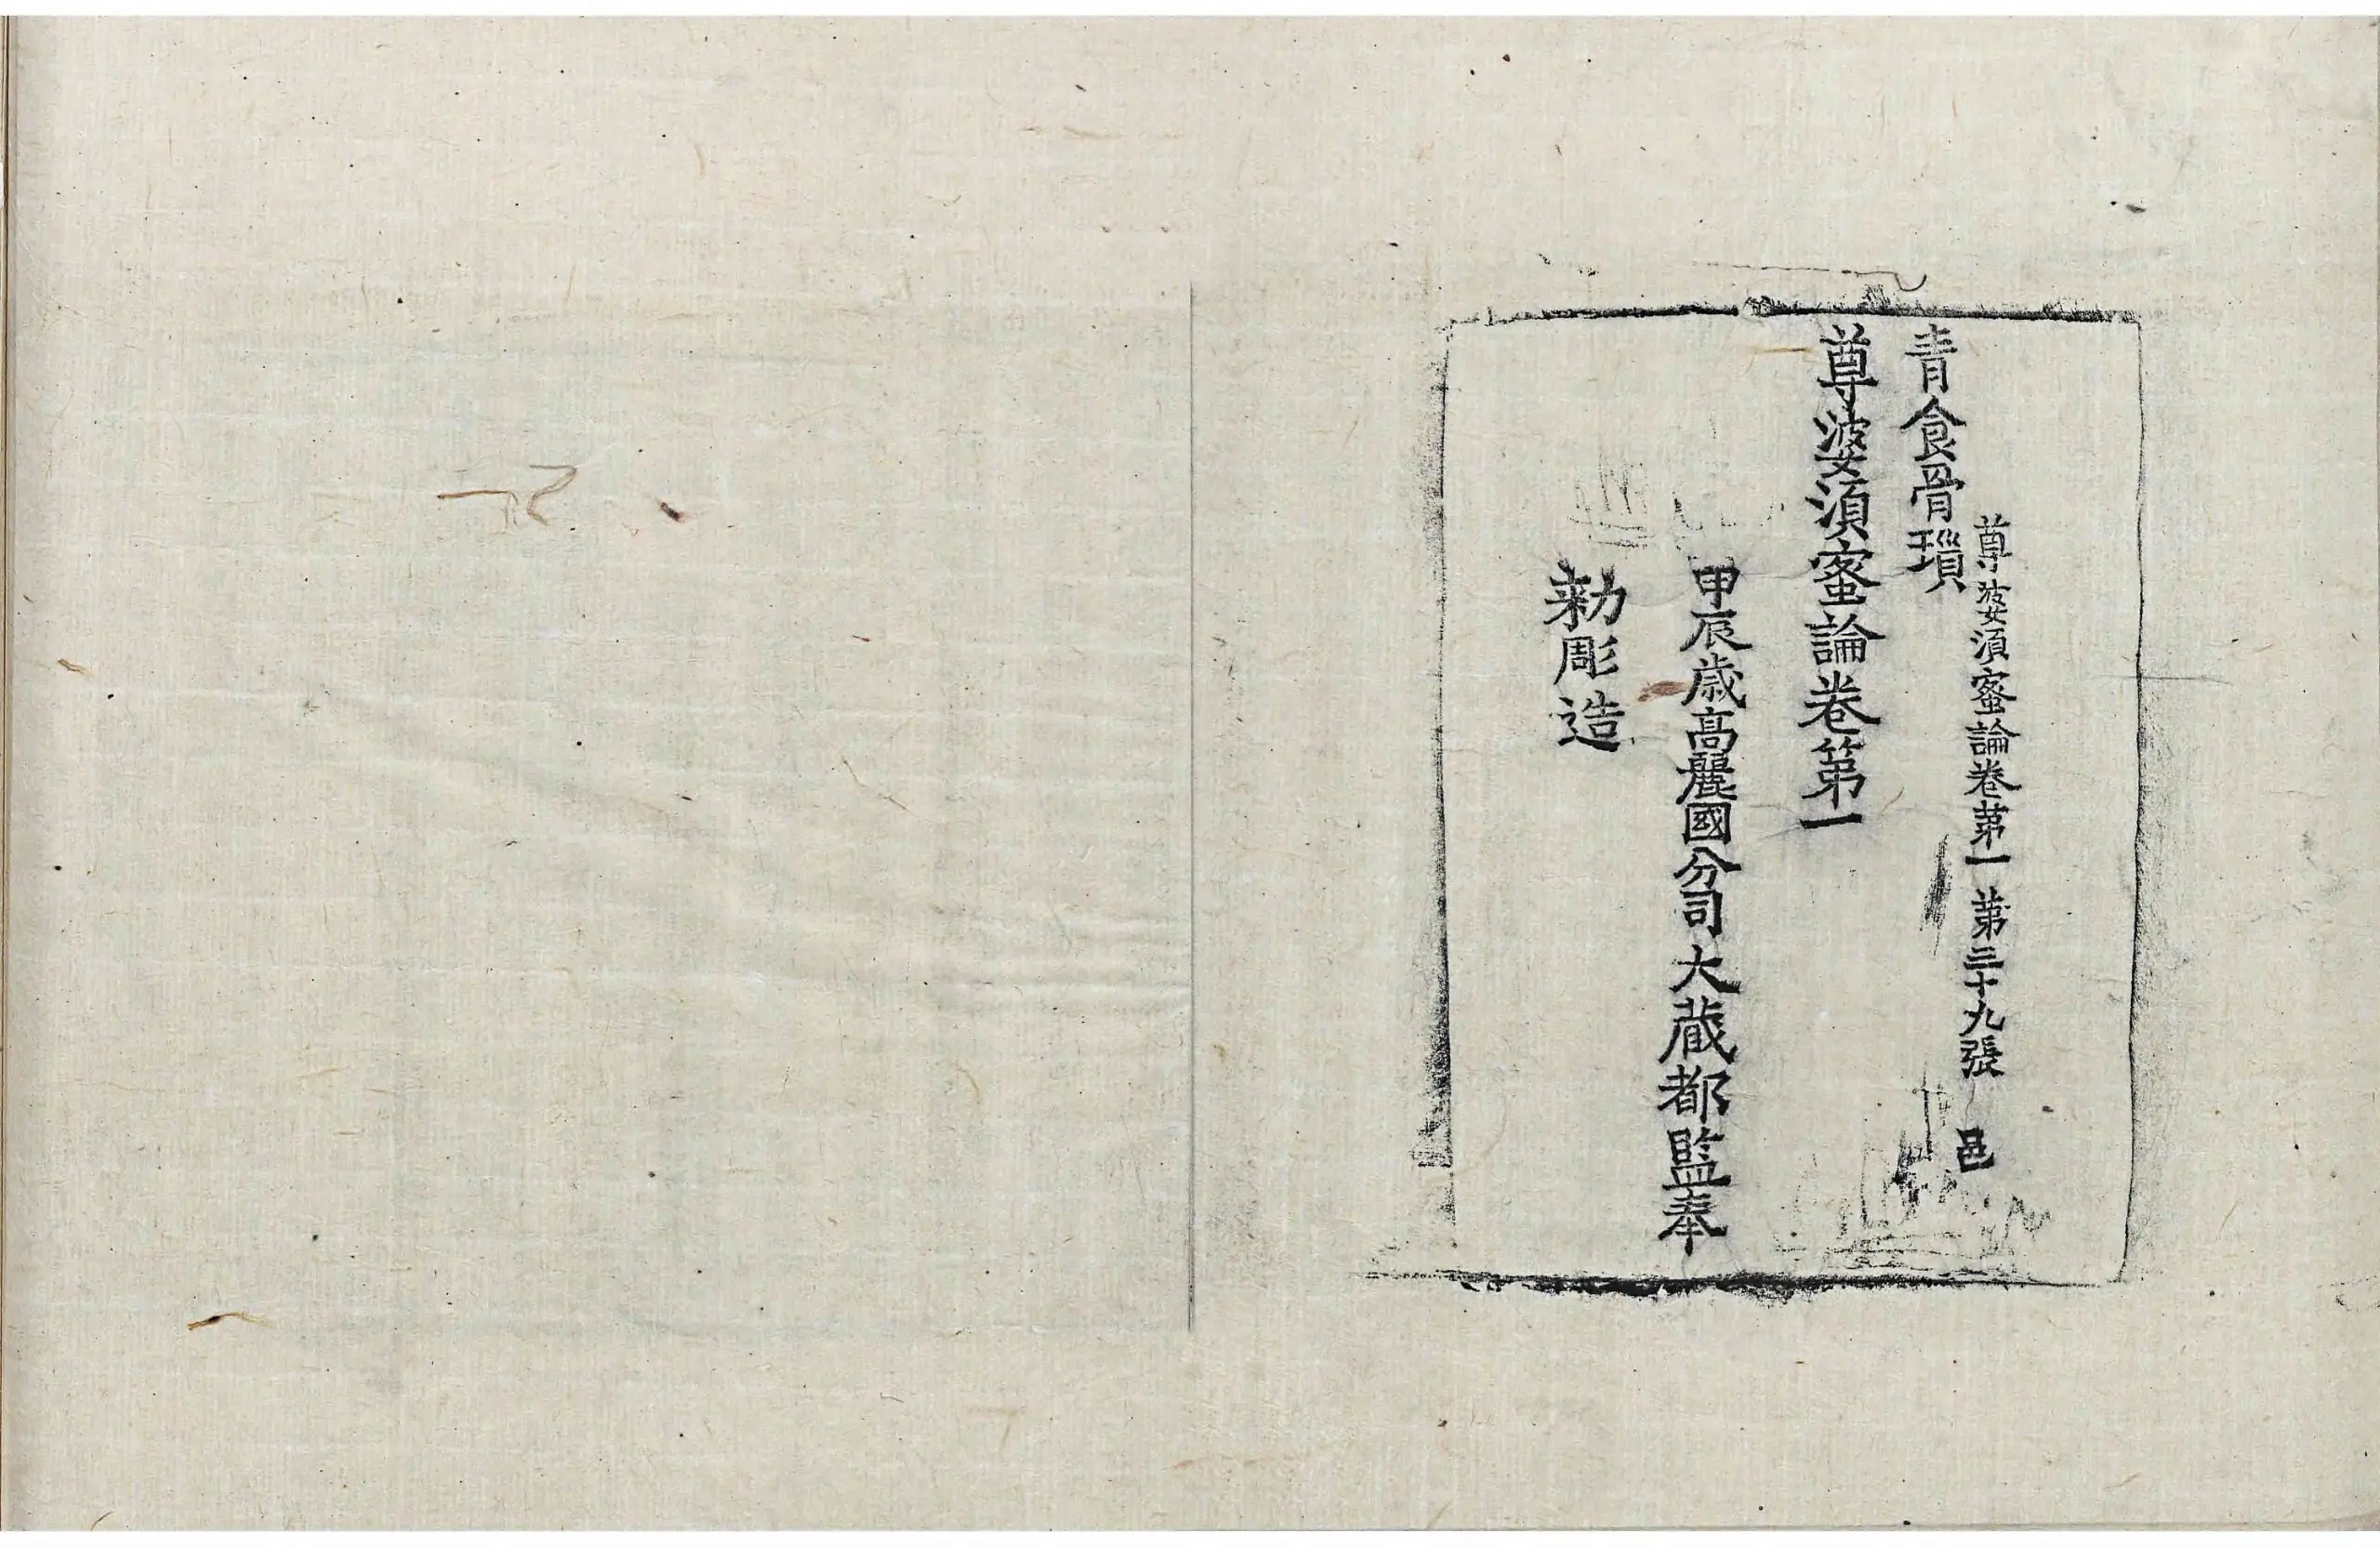 尊婆須蜜論卷第一　第三十九張　邑
青食骨瑣
尊婆須蜜論卷第一
甲辰歳高麗國分司大藏都監奉
勑彫造